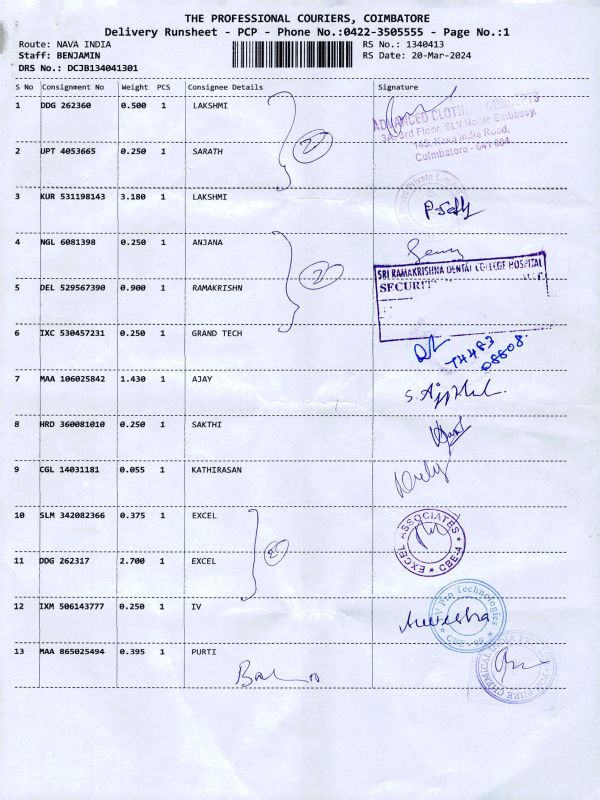 THE PROFESSIONAL COURIERS, COIMBATORE
Delivery Runsheet - PCP - Phone No.:0422-3505555 - Page No.:1
Route: NAVA INDIA RS No.: 1340413
Staff: BENJAMIN RS Date: 20-Mar-2024
DRS No.: DCJB134041301
S No Consignment No Weight PCS Consignee Details Signature
1 DDG 262360 0.500 1 LAKSHMI
ADVANCED CLOTHING CONCEPTS
3A-3rd Floor, SLV Noble Embassy,
145, Nava India Road,
Coimbatore - 641 004.
2 UPT 4053665 0.250 1 SARATH
3 KUR 531198143 3.180 1 LAKSHMI
4 NGL 6081398 0.250 1 ANJANA
SRI RAMAKRISHNA DENTAL COLLEGE HOSPITAL
5 DEL 529567390 0.900 1 RAMAKRISHN
6 IXC 530457231 0.250 1 GRAND TECH
7 MAA 106025842 1.430 1 AJAY
8 HRD 360081010 0.250 1 SAKTHI
9 CGL 14031181 0.055 1 KATHIRASAN
10 SLM 342082366 0.375 1 EXCEL
EXCEL ASSOCIATES
CBE-4
11 DDG 262317 2.700 1 EXCEL
12 IXM 506143777 0.250 1 IV
V Pro Technologies
13 MAA 865025494 0.395 1 PURTI